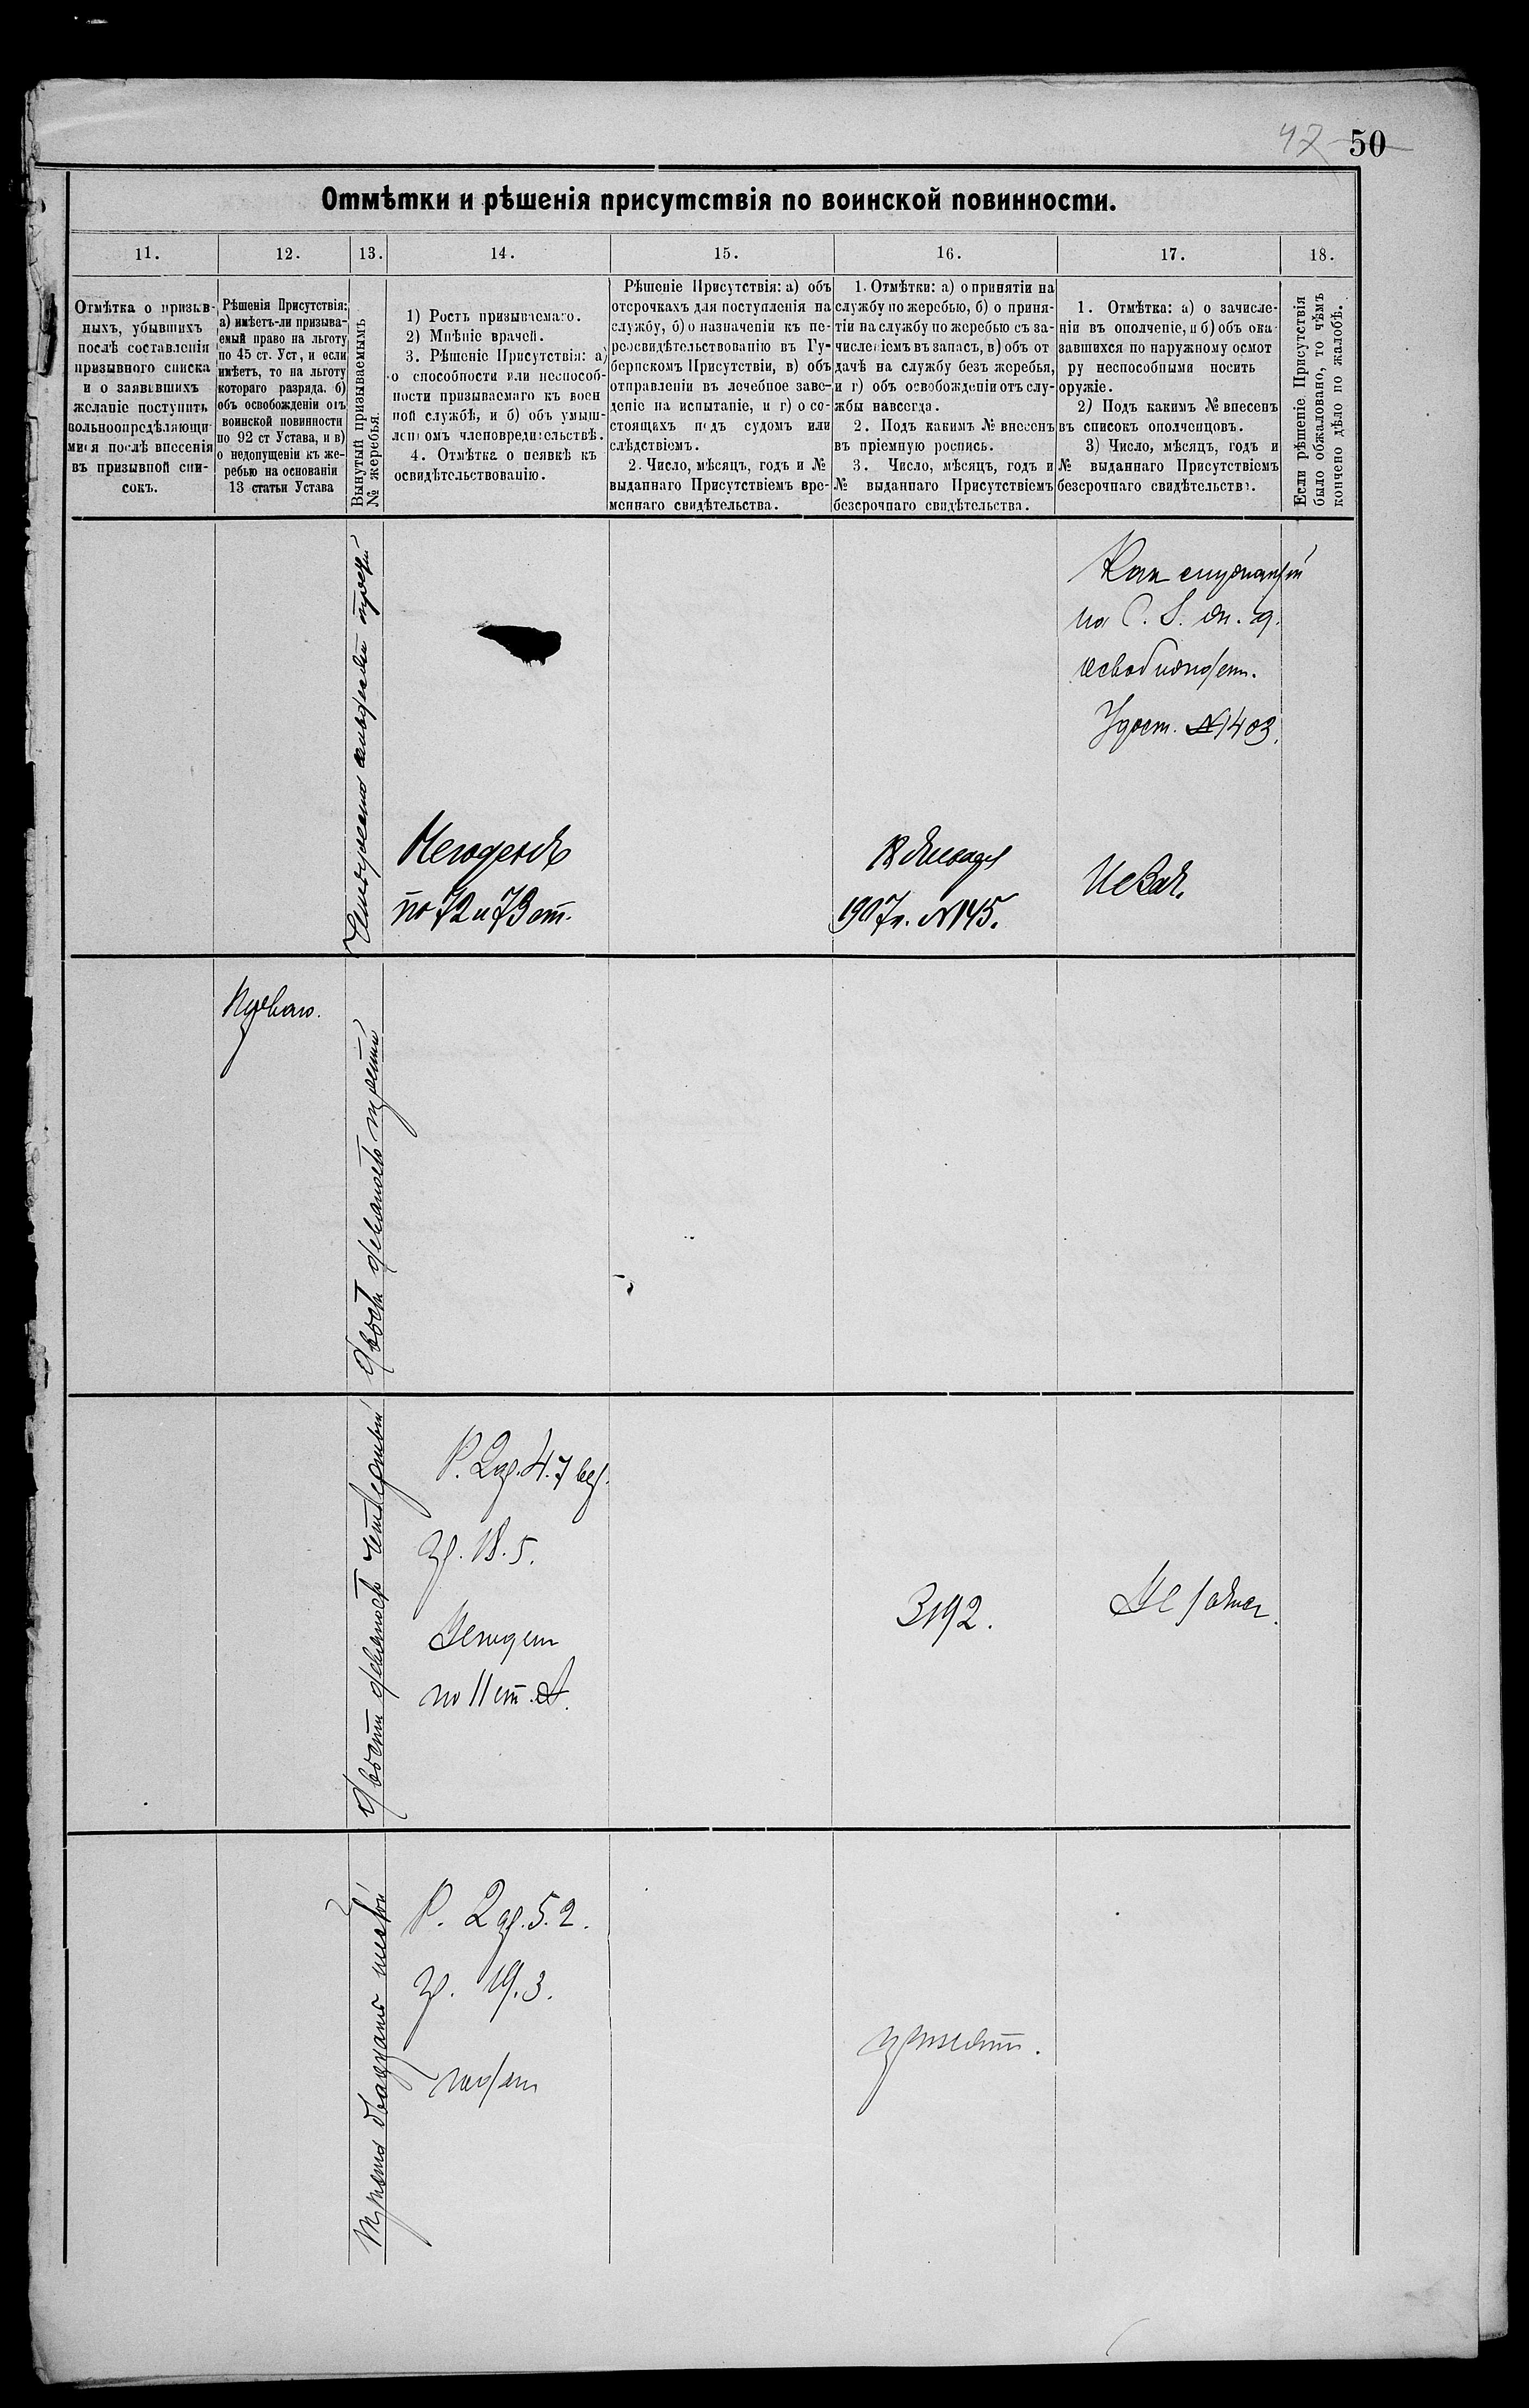 42 50
Отмѣтки и рѣшенія присутствія по воинской повинности.
11. 12. 13. 14. 15. 16. 17. 18.
Отмѣтка о призыв-
ныхъ, убывшихъ
послѣ составленія
призывного списка
и о заявившихъ
желаніе поступить
вольноопредѣляющи-
мися послѣ внесенія
въ призывной спи-
сокъ.
Рѣшенія Присутствія:
а) имѣетъ-ли призыва-
емый право на льготу
по 45 ст. Уст, и если
имѣетъ, то на льготу
котораго разряда. б)
объ освобожденіи отъ
воинской повинности
по 92 ст Устава, и в)
о недопущеніи къ же-
ребью на основаніи
13 статьи Устава
Вынутый призываемымъ
№ жеребья.
1) Ростъ призываемаго.
2) Мнѣніе врачей.
3. Рѣшеніе Присутствія: а)
о способности или неспособ-
ности призываемаго къ воен
ной службѣ, и б) объ умыш-
ленномъ членовредительствѣ.
4. Отмѣтка о неявкѣ къ
освидѣтельствованію.
Рѣшеніе Присутствія: а) объ
отсрочкахъ для поступленія на
службу, б) о назначеніи къ пе-
реосвидѣтельствованію въ Гу-
бернскомъ Присутствіи, в) объ
отправленіи въ лечебное заве-
деніе на испытаніе, и г) о со-
стоящахъ подъ судомъ или
слѣдствіемъ.
2. Число, мѣсяцъ, годъ и №
выданнаго Присутствіемъ вре-
меннаго свидѣтельства.
1. Отмѣтки: а) о принятіи на
службу по жеребью, б) о приня-
тіи на службу по жеребью съ за-
численіемъ въ запасъ, в) объ от
дачѣ на службу безъ жеребья,
и г) объ освобожденіи отъ слу-
жбы навсегда.
2. Подъ какимъ № внесенъ
въ пріемную роспись.
3. Число, мѣсяцъ, годъ и
№ выданнаго Присутствіемъ
безсрочнаго свидѣтельства.
1. Отмѣтка: а) о зачисле-
ніи въ ополченіе, и б) объ ока
завшихся по наружному осмот
ру неспособными носить
оружіе.
2) Подъ какимъ № внесенъ
въ списокъ ополченцовъ.
3) Число, мѣсяцъ, годъ и
№ выданнаго Присутствіемъ
безсрочнаго свидѣтельства.
Если рѣшеніе Присутствія
было обжаловано, то чѣмъ
кончено дѣло по жалобѣ.
третій
Негоденъ
по 72 и 73 ст.
1907 г. №145.
Как служащій
на
освобожден.
Удост. №1403.
Не зач.
Двѣсти девяносто третій
Двѣсти девяносто четвертый
Р. 2 ар. 4. 7 вер.
гр. 18. 5.
Негоден
по 11 ст. А.
3192.
Не зачис.
Триста двадцать шестой
Р. 2 ар. 5. 2.
гр. 19. 3.
годен
принят.